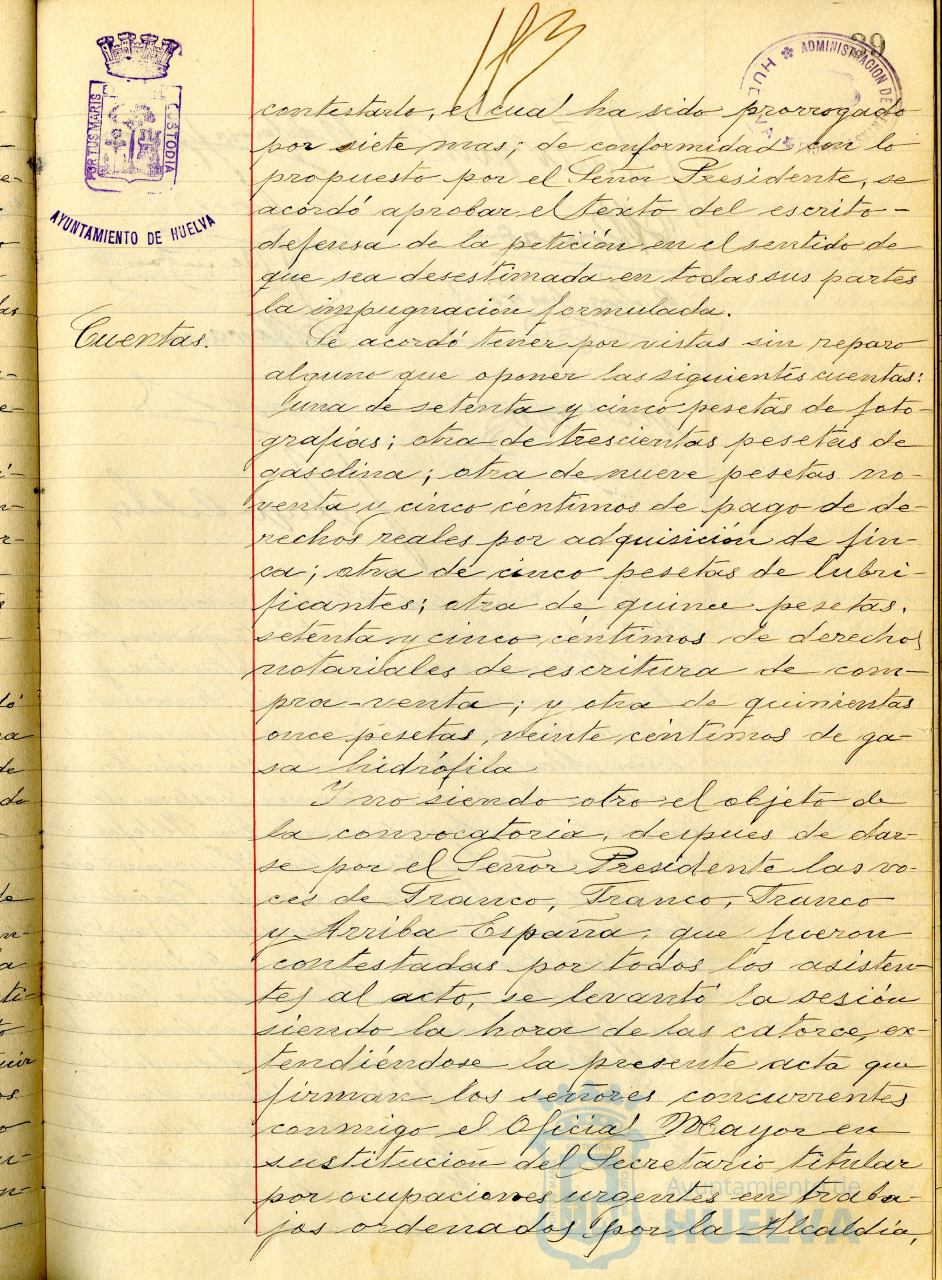 183
89
ADMINISTRACION DE
HUELVA
PORTUS MARIS
CUSTODIA
AYUNTAMIENTO DE HUELVA
contestarlo, el cual ha sido prorrogado
por siete mas; de conformidad con lo
propuesto por el Señor Presidente, se
acordó aprobar el texto del escrito-
defensa de la petición en el sentido de
que sea desestimada en todas sus partes
la impugnación formulada.
Cuentas.
Se acordó tener por vistas sin reparo
alguno que oponer las siguientes cuentas:
una de setenta y cinco pesetas de foto-
grafías; otra de trescientas pesetas de
gasolina; otra de nueve pesetas no-
venta y cinco céntimos de pago de de-
rechos reales por adquisición de fin-
ca; otra de cinco pesetas de lubri-
ficantes; otra de quince pesetas,
setenta y cinco céntimos de derechos
notariales de escritura de com-
pra-venta; y otra de quinientas
once pesetas, veinte céntimos de ga-
sa hidrófila
Y no siendo otro el objeto de
la convocatoria, despues de dar-
se por el Señor Presidente las vo-
ces de Franco, Franco, Franco
y Arriba España, que fueron
contestadas por todos los asisten-
tes al acto, se levantó la sesión
siendo la hora de las catorce, ex-
tendiéndose la presente acta que
firman los señores concurrentes
conmigo el Oficial Mayor en
sustitución del Secretario titular
por ocupaciones urgentes en traba-
jos ordenados por la Alcaldía,
Ayuntamiento de
HUELVA